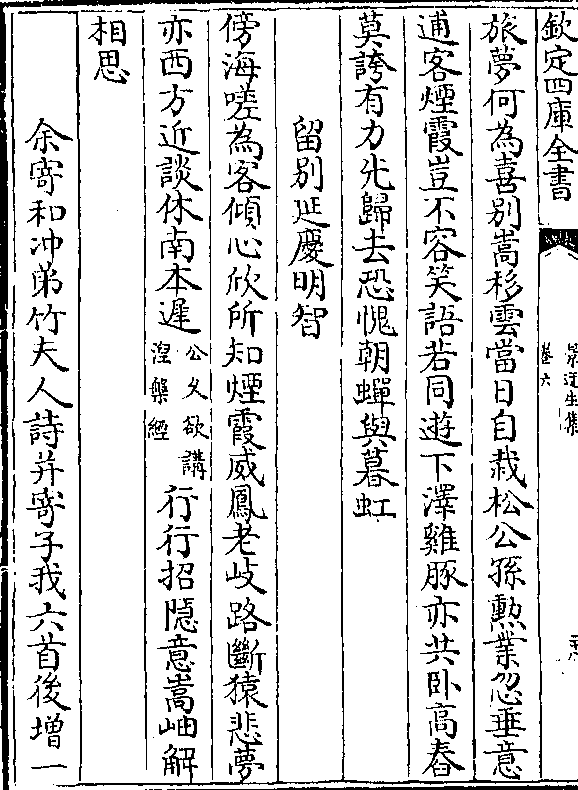 欽定四庫全書
景迂生集
卷六
旅夢何為喜別嵩杉雲當日自栽松公孫勲業忽垂意
逋客煙霞豈不容笑語若同遊下澤雞豚亦共卧高舂
莫誇有力先歸去恐愧朝蟬與暮虹
留別延慶明智
傍海嗟為客傾心欣所知煙霞威鳳老岐路斷猿悲夢
亦西方近談休南本遲公乂欲講涅槃經行行招隠意嵩岫解
相思
余寄和冲弟竹夫人詩并寄子我六首後增一